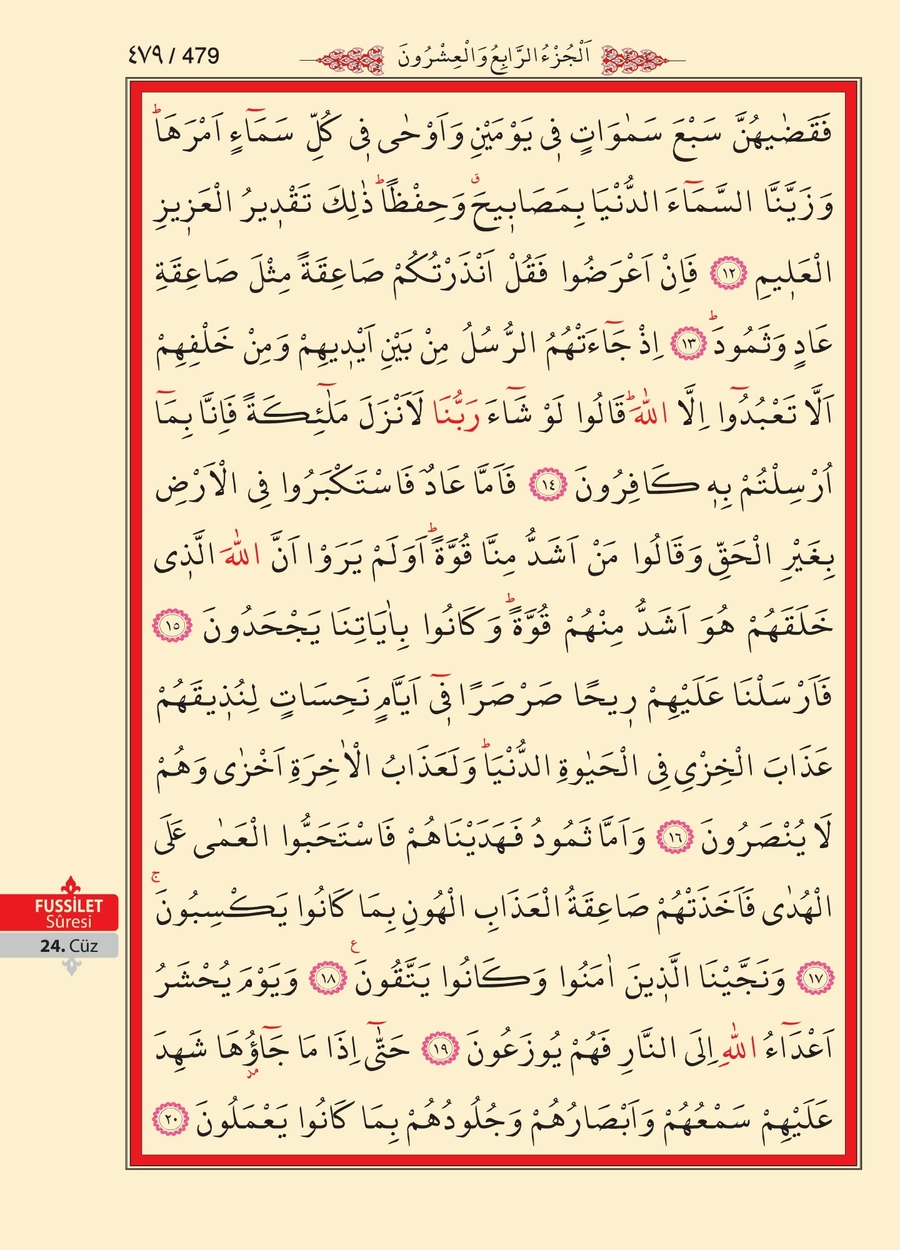 ٤٧٩ / 479
اَلْجُزْءُ الرَّابِعُ وَالْعِشْرُونَ
فَقَضٰيهُنَّ سَبْعَ سَمٰوَاتٍ فٖى يَوْمَيْنِ وَاَوْحٰى فٖى كُلِّ سَمَٓاءٍ اَمْرَهَاؕ
وَزَيَّنَّا السَّمَٓاءَ الدُّنْيَا بِمَصَابٖيحَࣗ وَحِفْظًاؕ ذٰلِكَ تَقْدٖيرُ الْعَزٖيزِ
الْعَلٖيمِ ﴿١٢﴾ فَاِنْ اَعْرَضُوا فَقُلْ اَنْذَرْتُكُمْ صَاعِقَةً مِثْلَ صَاعِقَةِ
عَادٍ وَثَمُودَؕ ﴿١٣﴾ اِذْ جَٓاءَتْهُمُ الرُّسُلُ مِنْ بَيْنِ اَيْدٖيهِمْ وَمِنْ خَلْفِهِمْ
اَلَّا تَعْبُدُٓوا اِلَّا اللّٰهَؕ قَالُوا لَوْ شَٓاءَ رَبُّنَا لَاَنْزَلَ مَلٰٓئِكَةً فَاِنَّا بِمَٓا
اُرْسِلْتُمْ بِهٖ كَافِرُونَ ﴿١٤﴾ فَاَمَّا عَادٌ فَاسْتَكْبَرُوا فِى الْاَرْضِ
بِغَيْرِ الْحَقِّ وَقَالُوا مَنْ اَشَدُّ مِنَّا قُوَّةًؕ اَوَلَمْ يَرَوْا اَنَّ اللّٰهَ الَّذٖى
خَلَقَهُمْ هُوَ اَشَدُّ مِنْهُمْ قُوَّةًؕ وَكَانُوا بِاٰيَاتِنَا يَجْحَدُونَ ﴿١٥﴾
فَاَرْسَلْنَا عَلَيْهِمْ رٖيحًا صَرْصَرًا فٖٓى اَيَّامٍ نَحِسَاتٍ لِنُذٖيقَهُمْ
عَذَابَ الْخِزْىِ فِى الْحَيٰوةِ الدُّنْيَاؕ وَلَعَذَابُ الْاٰخِرَةِ اَخْزٰى وَهُمْ
لَا يُنْصَرُونَ ﴿١٦﴾ وَاَمَّا ثَمُودُ فَهَدَيْنَاهُمْ فَاسْتَحَبُّوا الْعَمٰى عَلَى
الْهُدٰى فَاَخَذَتْهُمْ صَاعِقَةُ الْعَذَابِ الْهُونِ بِمَا كَانُوا يَكْسِبُونَۚ
﴿١٧﴾ وَنَجَّيْنَا الَّذٖينَ اٰمَنُوا وَكَانُوا يَتَّقُونَ ع ﴿١٨﴾ وَيَوْمَ يُحْشَرُ
اَعْدَٓاءُ اللّٰهِ اِلَى النَّارِ فَهُمْ يُوزَعُونَ ﴿١٩﴾ حَتّٰٓى اِذَا مَا جَٓاؤُ۫هَا شَهِدَ
عَلَيْهِمْ سَمْعُهُمْ وَاَبْصَارُهُمْ وَجُلُودُهُمْ بِمَا كَانُوا يَعْمَلُونَ ﴿٢٠﴾
FUSSİLET
Sûresi
24. Cüz